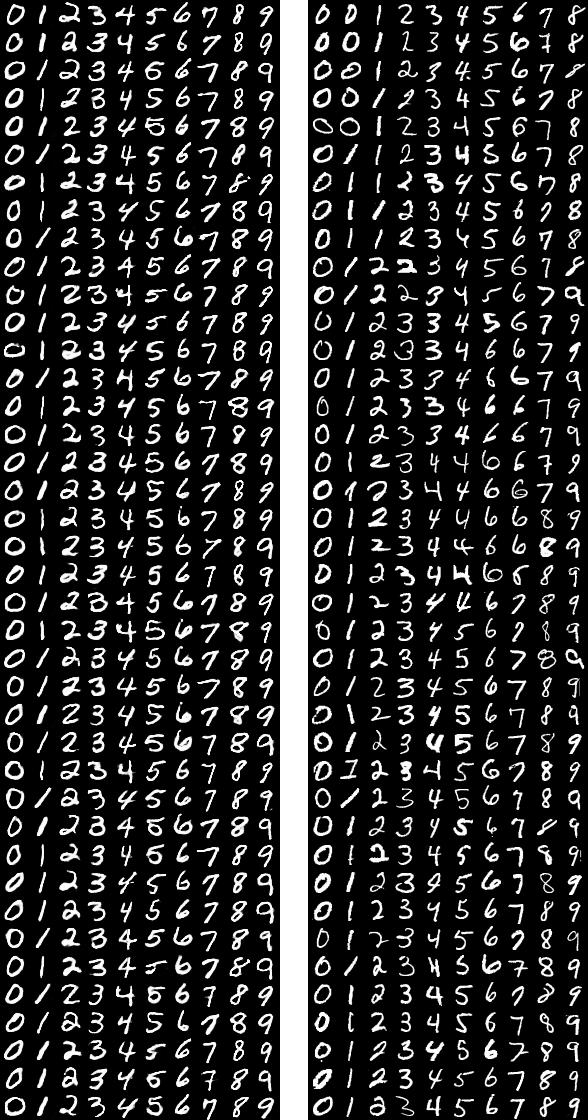 0 1 2 3 4 5 6 7 8 9
0 1 2 3 4 5 6 7 8 9
0 1 2 3 4 5 6 7 8 9
0 1 2 3 4 5 6 7 8 9
0 1 2 3 4 5 6 7 8 9
0 1 2 3 4 5 6 7 8 9
0 1 2 3 4 5 6 7 8 9
0 1 2 3 4 5 6 7 8 9
0 1 2 3 4 5 6 7 8 9
0 1 2 3 4 5 6 7 8 9
0 1 2 3 4 5 6 7 8 9
0 1 2 3 4 5 6 7 8 9
0 1 2 3 4 5 6 7 8 9
0 1 2 3 4 5 6 7 8 9
0 1 2 3 4 5 6 7 8 9
0 1 2 3 4 5 6 7 8 9
0 1 2 3 4 5 6 7 8 9
0 1 2 3 4 5 6 7 8 9
0 1 2 3 4 5 6 7 8 9
0 1 2 3 4 5 6 7 8 9
0 1 2 3 4 5 6 7 8 9
0 1 2 3 4 5 6 7 8 9
0 1 2 3 4 5 6 7 8 9
0 1 2 3 4 5 6 7 8 9
0 1 2 3 4 5 6 7 8 9
0 1 2 3 4 5 6 7 8 9
0 1 2 3 4 5 6 7 8 9
0 1 2 3 4 5 6 7 8 9
0 1 2 3 4 5 6 7 8 9
0 1 2 3 4 5 6 7 8 9
0 1 2 3 4 5 6 7 8 9
0 1 2 3 4 5 6 7 8 9
0 1 2 3 4 5 6 7 8 9
0 1 2 3 4 5 6 7 8 9
0 1 2 3 4 5 6 7 8 9
0 1 2 3 4 5 6 7 8 9
0 1 2 3 4 5 6 7 8 9
0 1 2 3 4 5 6 7 8 9
0 1 2 3 4 5 6 7 8 9
0 1 2 3 4 5 6 7 8 9
0 0 1 2 3 4 5 6 7 8
0 0 1 2 3 4 5 6 7 8
0 0 1 2 3 4 5 6 7 8
0 0 1 2 3 4 5 6 7 8
0 0 1 2 3 4 5 6 7 8
0 1 1 2 3 4 5 6 7 8
0 1 1 2 3 4 5 6 7 8
0 1 1 2 3 4 5 6 7 8
0 1 1 2 3 4 5 6 7 8
0 1 2 2 3 4 5 6 7 8
0 1 2 2 3 4 5 6 7 9
0 1 2 3 3 4 5 6 7 9
0 1 2 3 3 4 6 6 7 9
0 1 2 3 3 4 6 6 7 9
0 1 2 3 3 4 6 6 7 9
0 1 2 3 3 4 6 6 7 9
0 1 2 3 4 4 6 6 7 9
0 1 2 3 4 4 6 6 7 9
0 1 2 3 4 4 6 6 8 9
0 1 2 3 4 4 6 6 8 9
0 1 2 3 4 4 6 8 8 9
0 1 2 3 4 4 6 7 8 9
0 1 2 3 4 5 6 7 8 9
0 1 2 3 4 5 6 7 8 9
0 1 2 3 4 5 6 7 8 9
0 1 2 3 4 5 6 7 8 9
0 1 2 3 4 5 6 7 8 9
0 1 2 3 4 5 6 7 8 9
0 1 2 3 4 5 6 7 8 9
0 1 2 3 4 5 6 7 8 9
0 1 2 3 4 5 6 7 8 9
0 1 2 3 4 5 6 7 8 9
0 1 2 3 4 5 6 7 8 9
0 1 2 3 4 5 6 7 8 9
0 1 2 3 4 5 6 7 8 9
0 1 2 3 4 5 6 7 8 9
0 1 2 3 4 5 6 7 8 9
0 1 2 3 4 5 6 7 8 9
0 1 2 3 4 5 6 7 8 9
0 1 2 3 4 5 6 7 8 9